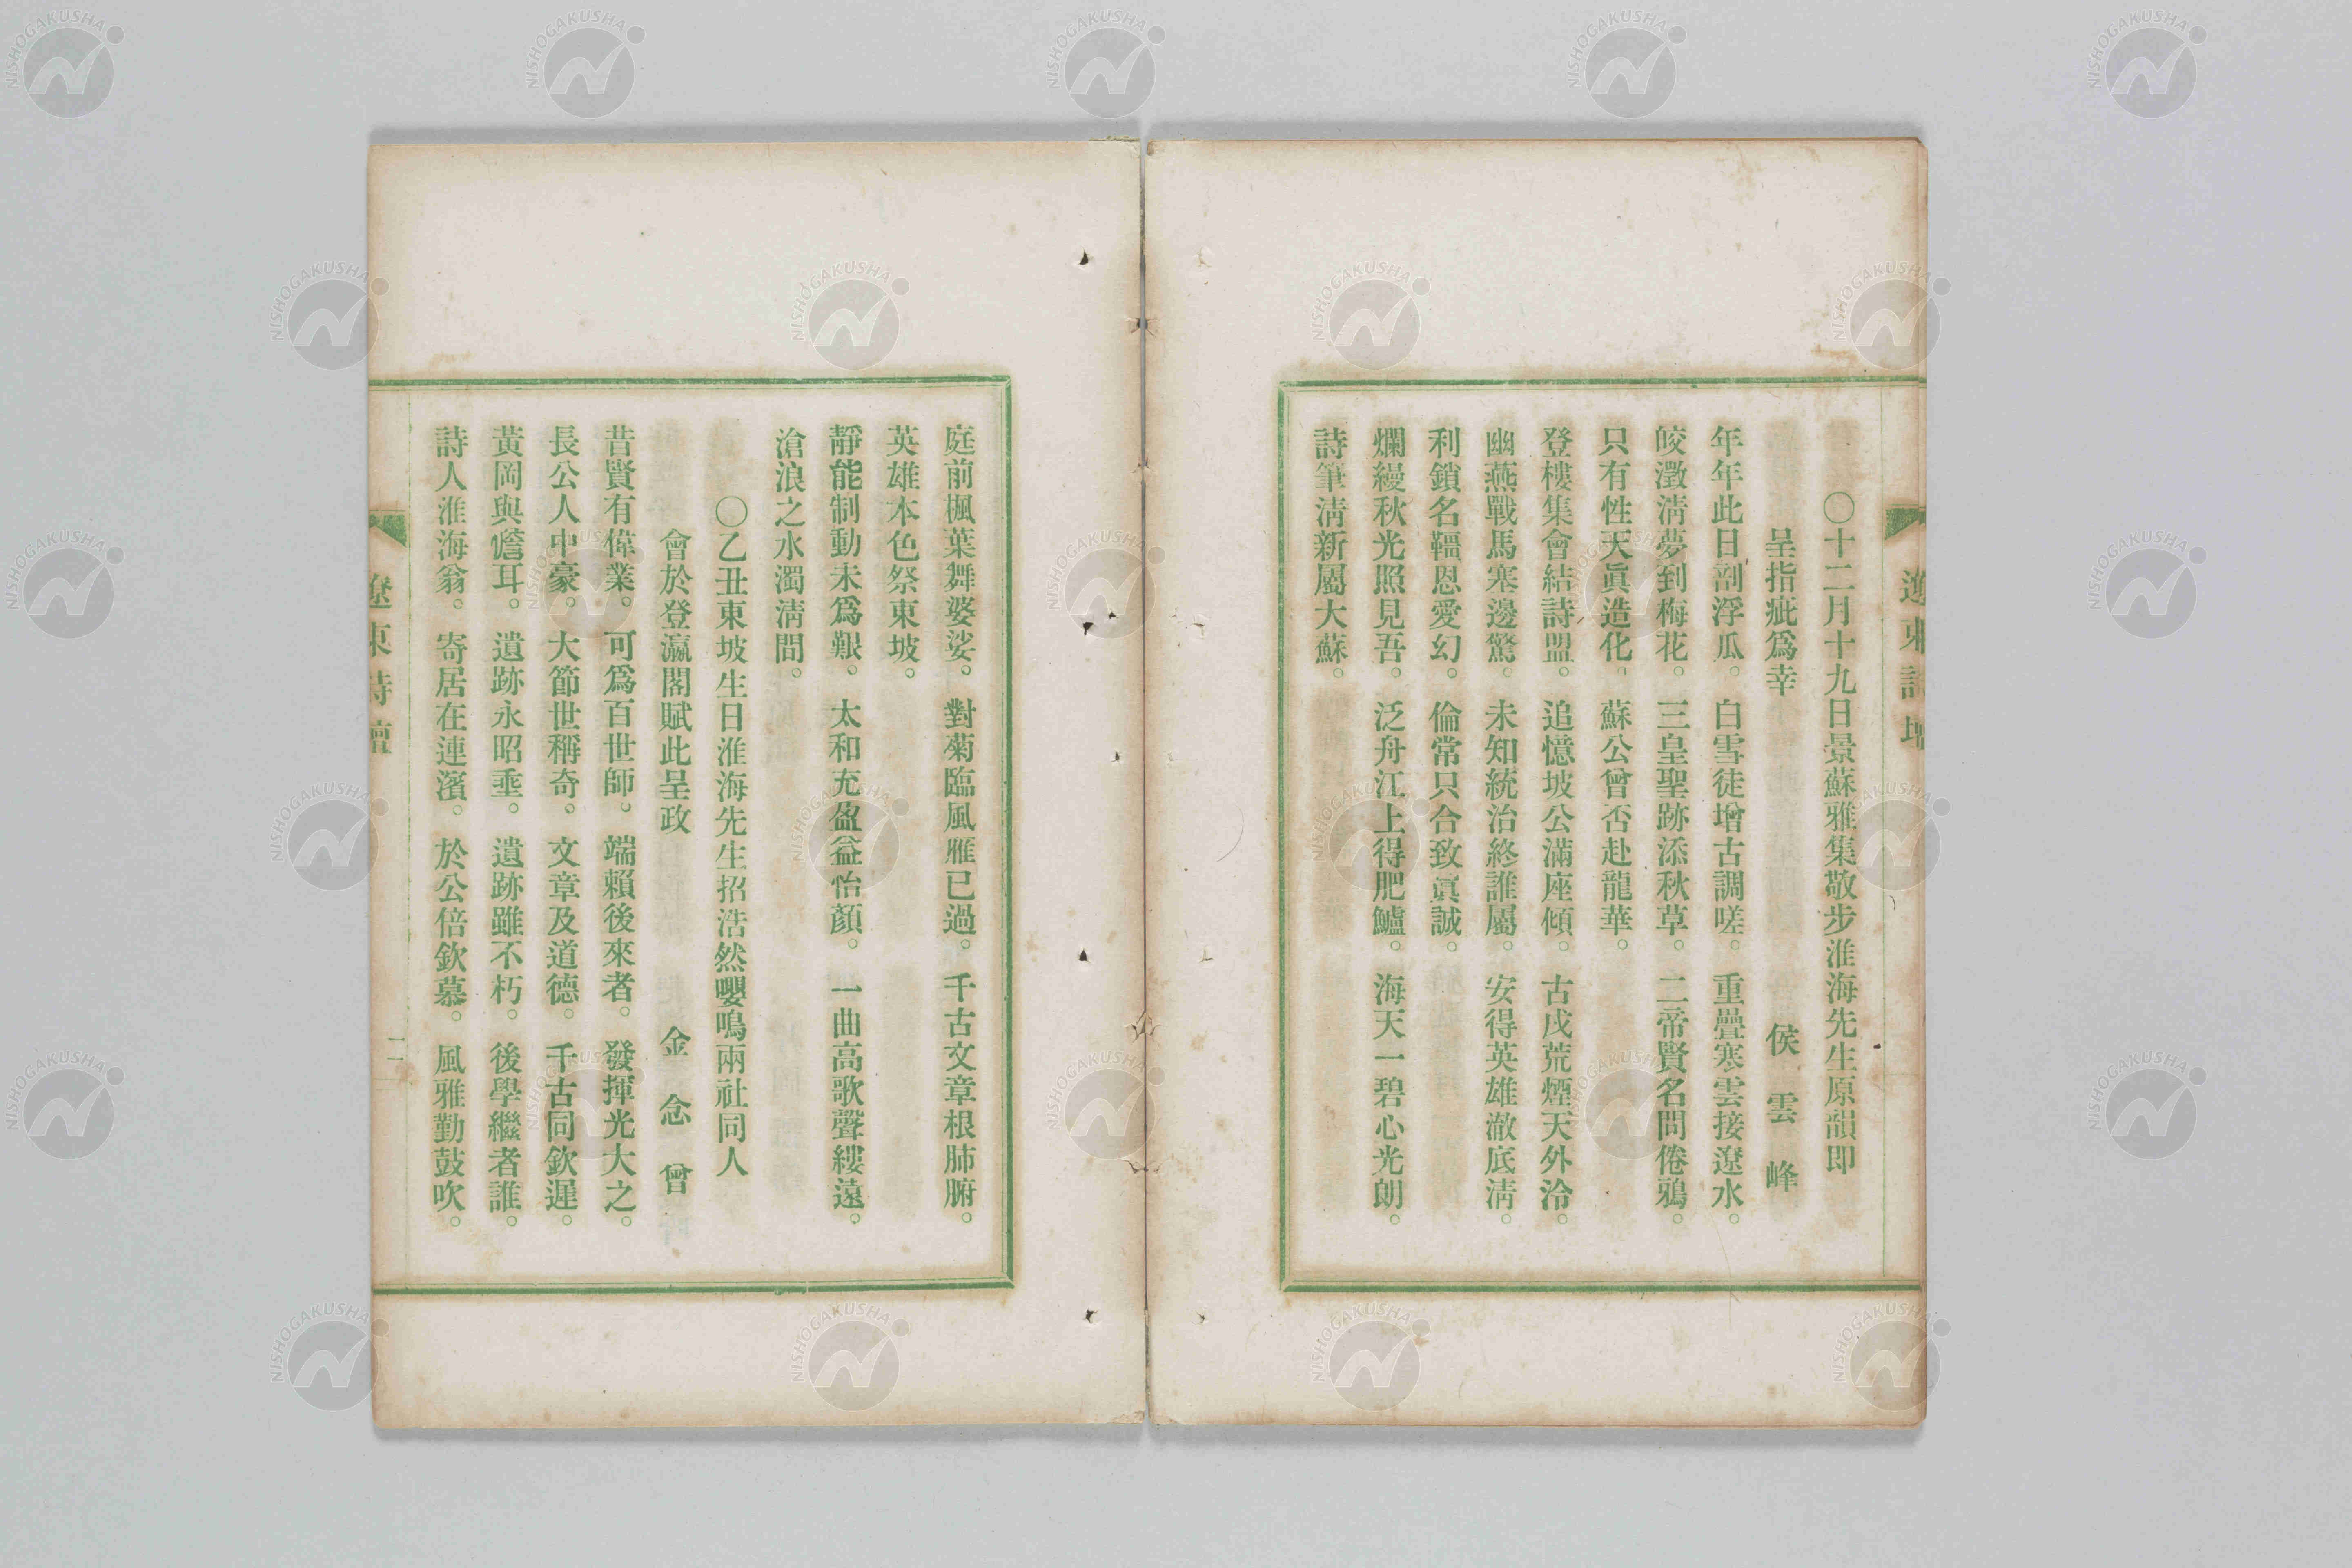 遼東詩壇
○十二月十九日景蘇雅集敬步淮海先生原韻即
呈指疵爲幸　侯雲峰
年年此日剖浮瓜。白雪徒增古調嗟。重疊寒雲接遼水。
皎澂淸夢到梅花。三皇聖跡添秋草。二帝賢名問倦鴉。
只有性天眞造化。蘇公曾否赴龍華。
登樓集會結詩盟。追憶坡公滿座傾。古戍荒煙天外冷。
幽燕戰馬塞邊驚。未知統治終誰屬。安得英雄澈底淸。
利鎖名韁恩愛幻。倫常只合致眞誠。
爛縵秋光照見吾。泛舟江上得肥鱸。海天一碧心光朗。
詩筆淸新屬大蘇。
庭前楓葉舞婆娑。對菊臨風雁已過。千古文章根肺腑。
英雄本色祭東坡。
靜能制動未爲艱。太和充盈益怡顏。一曲高歌聲縷遠。
滄浪之水濁淸間。
○乙丑東坡生日淮海先生招浩然嚶鳴兩社同人
會於登瀛閣賦此呈政　金念曾
昔賢有偉業。可爲百世師。端賴後來者。發揮光大之。
長公人中豪。大節世稱奇。文章及道德。千古同欽遲。
黃岡與儋耳。遺跡永昭垂。遺跡雖不朽。後學繼者誰。
詩人淮海翁。寄居在連濱。於公倍欽慕。風雅勤鼓吹。
遼東詩壇
二
NISHOGAKUSHA